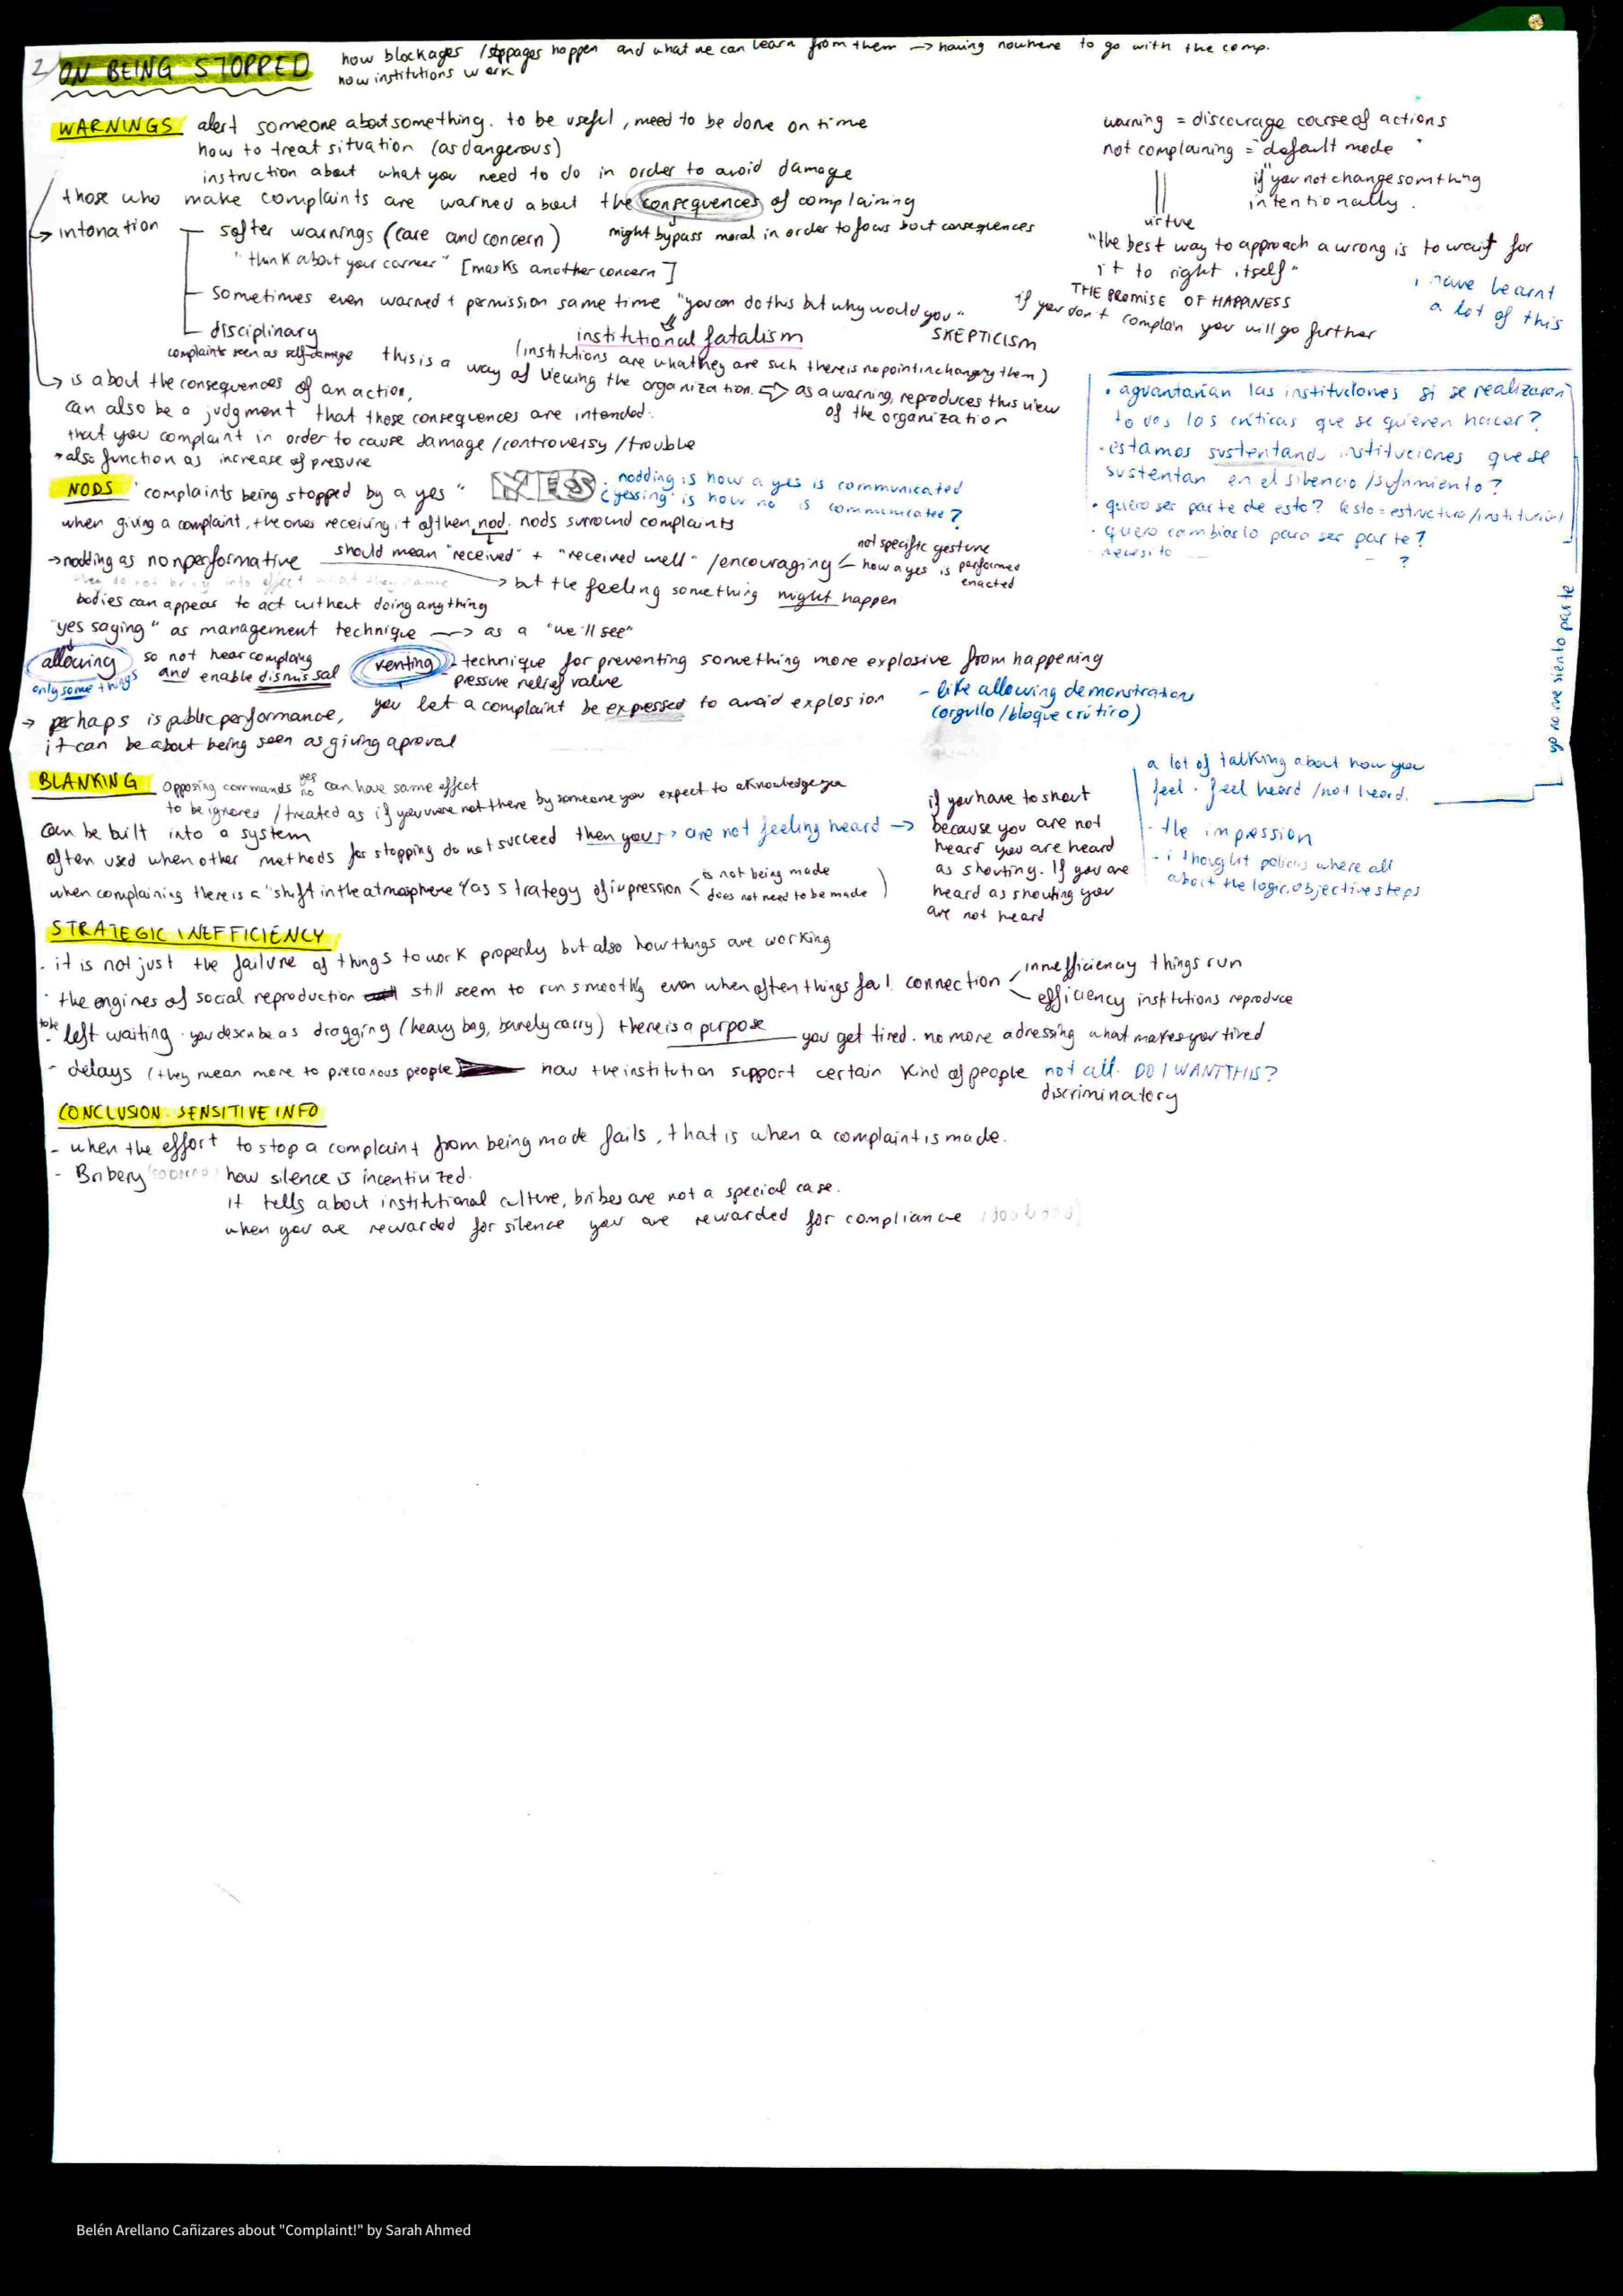 2/ ON BEING STOPPED
how blockages / stoppages happen and what we can learn from them → having nowhere to go with the comp.
how institutions work
WARNINGS alert someone about something. to be useful, need to be done on time
how to treat situation (as dangerous)
instruction about what you need to do in order to avoid damage
those who make complaints are warned about the consequences of complaining
might bypass moral in order to focus bout consequences
→ intonation
softer warnings (care and concern)
"think about your carreer" [masks another concern]
sometimes even warned + permission same time "you can do this but why would you"
SKEPTICISM
disciplinary
complaints seen as self damage
institutional fatalism
(institutions are what they are such there is no point in changing them)
this is a way of viewing the organization. ⇨ as a warning, reproduces this view
of the organization
→ is about the consequences of an action,
can also be a judgment that those consequences are intended.
that you complaint in order to cause damage / controversy / trouble
→ also function as increase of pressure
warning = discourage course of actions
not complaining = "default mode"
if you not change somthing
intentionally.
virtue
"the best way to approach a wrong is to wait for
it to right itself"
THE PROMISE OF HAPPINESS
if you don't complain you will go further
i have learnt
a lot of this
• aguantarían las instituciones si se realizaran
todas las críticas que se quieren hacer?
- estamos sustentando instituciones que se
sustentan en el silencio / sufrimiento?
• quiero ser parte de esto? (esto = estructura / institución)
• quiero cambiarlo para ser parte?
necesito ?
yo no me siento parte
NODS "complaints being stopped by a yes" YES
. nodding is how a yes is communicated
¿"yessing" is how no is communicated?
when giving a complaint, the ones receiving it often nod. nods surround complaints
→ nodding as nonperformative
should mean "received" + "received well" / encouraging
not specific gesture
how a yes is performed
enacted
→ but the feeling something might happen
then do not bring into effect what they name
bodies can appear to act without doing anything
"yes saying" as management technique → as a "we'll see"
allowing so not hear complaing
only some things and enable dismissal
venting - technique for preventing something more explosive from happening
- pressure relief valve
you let a complaint be expressed to avoid explosion
- like allowing demonstrations
(orgullo / bloque crítico)
→ perhaps is public performance,
it can be about being seen as giving aproval
BLANKING opposing commands yes no can have same effect
to be ignored / treated as if you were not there by someone you expect to aknowledge you
can be built into a system
often used when other methods for stopping do not succeed then you → are not feeling heard →
when complaining there is a "shift in the atmosphere" (as strategy of impression
is not being made
does not need to be made )
if you have to shout
because you are not
heard you are heard
as shouting. If you are
heard as shouting you
are not heard
a lot of talking about how you
feel. feel heard / not heard.
. the impression
- i thought policies where all
about the logic, objective steps
STRATEGIC INEFFICIENCY
. it is not just the failure of things to work properly but also how things are working
. the engines of social reproduction still seem to run smoothly even when often things fail. connection
innefficiency things run
efficiency institutions reproduce
to be left waiting. you describe as dragging (heavy bag, barely carry) there is a purpose — you get tired. no more adressing what makes you tired
- delays (they mean more to precarious people) how the institution support certain kind of people not all. DO I WANT THIS?
discriminatory
CONCLUSION: SENSITIVE INFO
- when the effort to stop a complaint from being made fails, that is when a complaint is made.
- Bribery (soborno) how silence is incentivized.
it tells about institutional culture, bribes are not a special case.
when you are rewarded for silence you are rewarded for compliance
Belén Arellano Cañizares about "Complaint!" by Sarah Ahmed